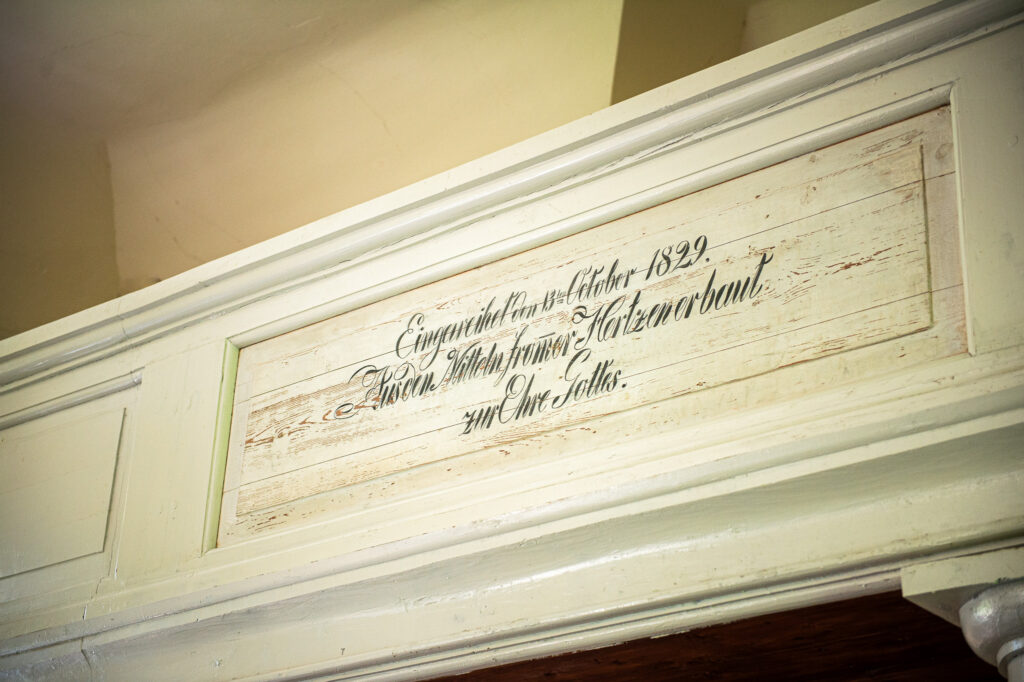 Eingeweihet den 13ten October 1829.
Aus den Mitteln fromer Hertzen erbaut
zur Ehre Gottes.